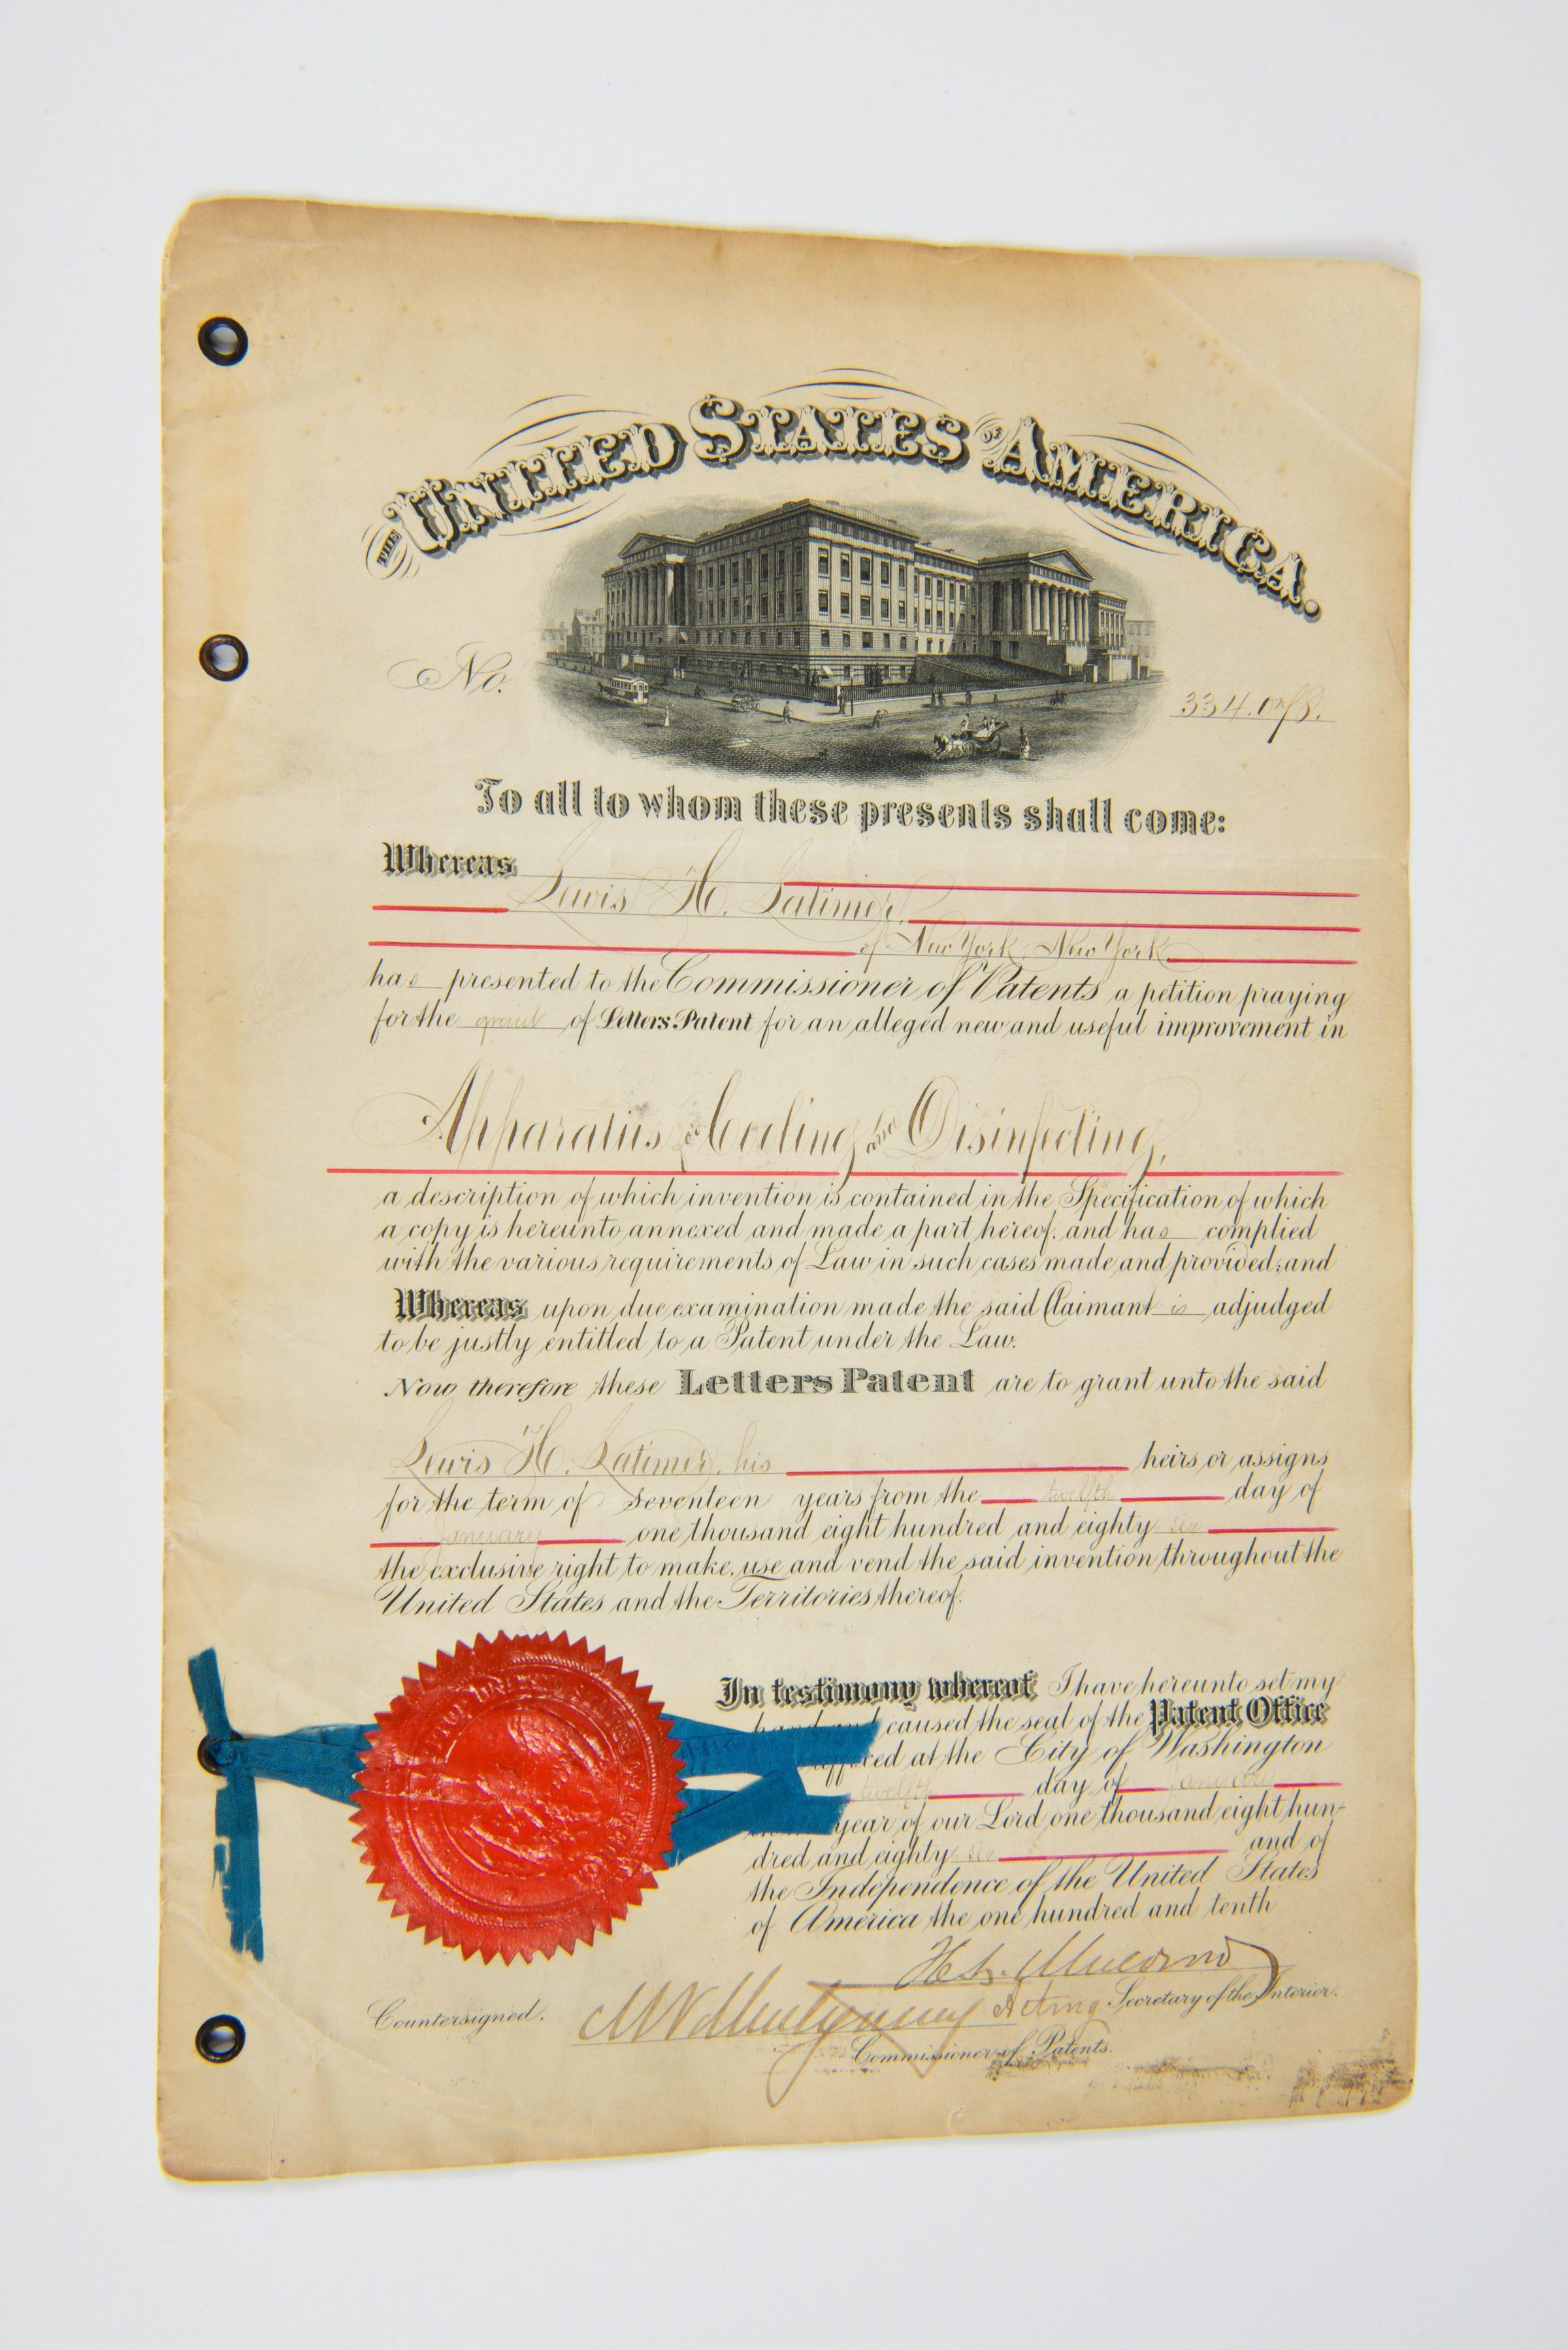 THE UNITED STATES OF AMERICA.
No.
334.078.
To all to whom these presents shall come:
Whereas
Lewis H. Latimer,
of New York, New York
has presented to the Commissioner of Patents a petition praying
for the grant of Letters Patent for an alleged new and useful improvement in
Apparatus for Cooling and Disinfecting,
a description of which invention is contained in the Specification of which
a copy is hereunto annexed and made a part hereof, and has complied
with the various requirements of Law in such cases made and provided; and
Whereas upon due examination made the said Claimant is adjudged
to be justly entitled to a Patent under the Law.
Now therefore these Letters Patent are to grant unto the said
Lewis H. Latimer, his heirs or assigns
for the term of Seventeen years from the twelfth day of
January one thousand eight hundred and eighty six
the exclusive right to make, use and vend the said invention throughout the
United States and the Territories thereof.
In testimony whereof I have hereunto set my
hand and caused the seal of the Patent Office
affixed at the City of Washington
twelfth day of January
year of our Lord one thousand eight hun-
dred and eighty six and of
the Independence of the United States
of America the one hundred and tenth
Acting Secretary of the Interior.
Countersigned.
Commissioner of Patents.